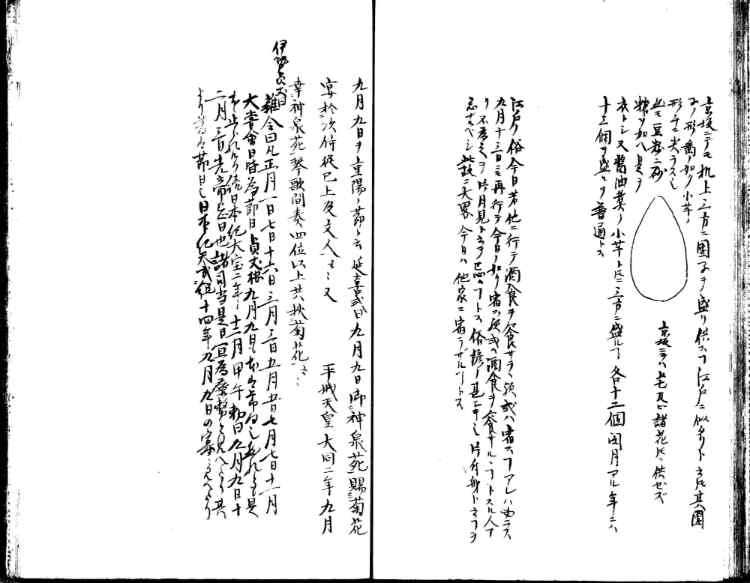 京坂ニテモ机上三方ニ団子ヲ盛リ供スコト江戸ニ似タリト云ヘトモ其団
子ノ形図ノ如ク小芋ノ
形チニ尖ラス也
然モ豆粉ニ砂
糖ヲ加ヘ是ヲ
衣トシ又醤油煮ノ小芋トトモニ三方ニ盛ルコト各十二個閏月アル年ニハ
十三個ヲ盛ルヲ普通トス
京坂ニテハ芒及ビ諸花トモニ供セズ
江戸ノ俗今日若他ニ行テ酒食ヲ食サシメ或ハ宿スコトアレハ必ラス
九月十三日ニ再行テ今日ノ如ク宿スカ或ハ酒食ヲ食サルコトスル人
リ不者之ヲ片月見ト云ヲ忌ムコトス俗諺ノ甚シキ也片付身ト云コヲ
忌ムベシ此故ニ大略今日ハ他家ニ宿ラザルコトス
九月九日ヲ重陽ノ節ト云延喜式曰九月九日御神泉苑賜菊花
宴於次侍従已上及文人云々又 平城天皇大同二年九月
幸神泉苑琴歌間奏四位以上共挿菊花云々
伊勢貞丈曰
雑令曰凡正月一日七日十六日三月三日五月五日七月七日十一月
大嘗會日皆為節日貞丈按九月九日
日本紀大宝二年十二月甲午勅曰九月九日十
二月三日先帝忌日也諸司当是日宜為廃務
節日也日本紀天武紀十四年九月九日の宴